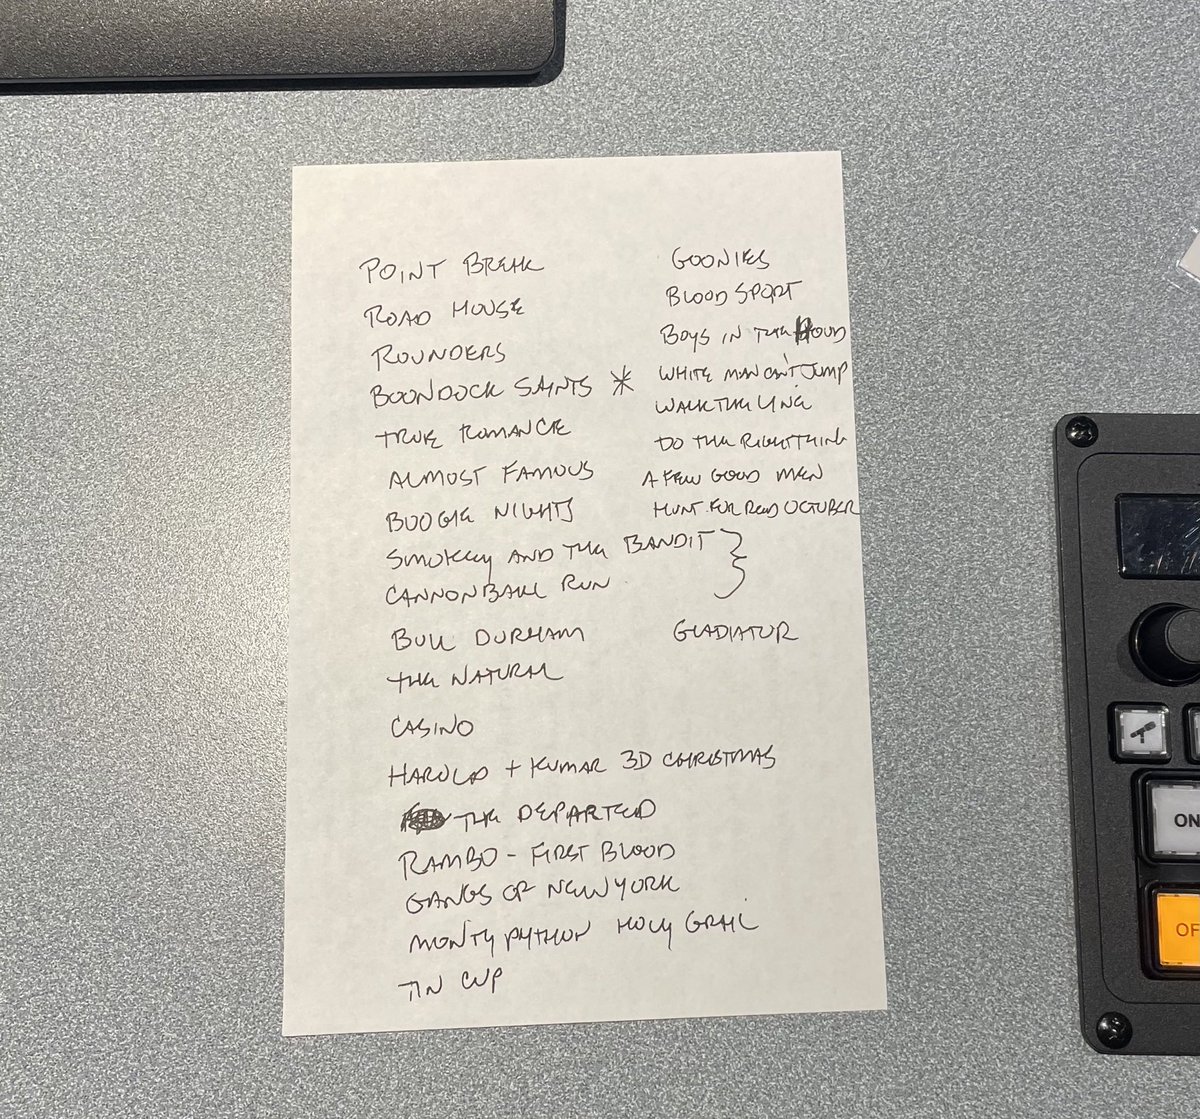 POINT BREAK
ROAD HOUSE
ROUNDERS
BOONDOCK SAINTS *
TRUE ROMANCE
ALMOST FAMOUS
BOOGIE NIGHTS
SMOKEY AND THE BANDIT }
CANNONBALL RUN
BULL DURHAM
THE NATURAL
CASINO
HAROLD + KUMAR 3D CHRISTMAS
THE DEPARTED
RAMBO - FIRST BLOOD
GANGS OF NEW YORK
MONTY PYTHON HOLY GRAIL
TIN CUP
GOONIES
BLOOD SPORT
BOYS IN THE HOOD
WHITE MAN CAN'T JUMP
WALK THE LINE
DO THE RIGHT THING
A FEW GOOD MEN
HUNT FOR RED OCTOBER
GLADIATOR
ON
OF